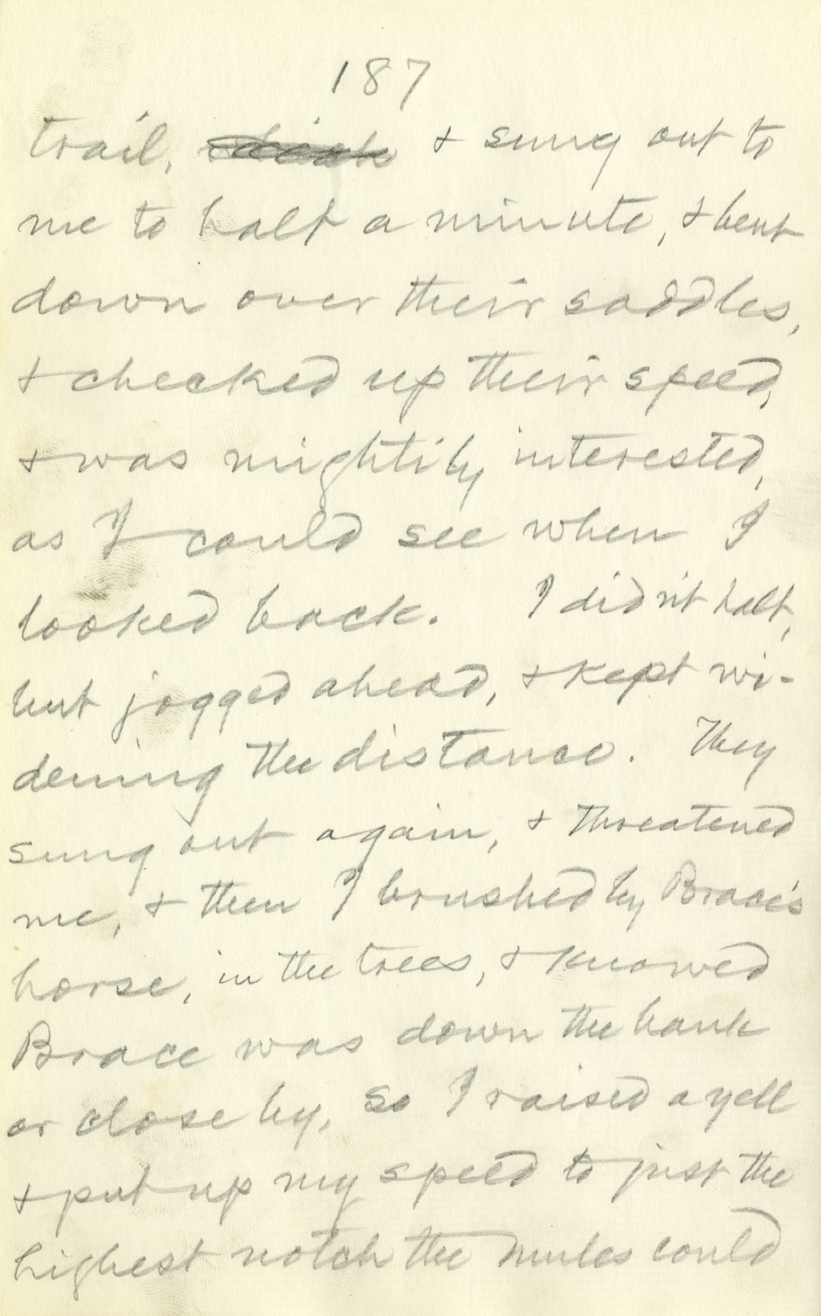 187
trail, & sung out to
me to halt a minute, & bent
down over their saddles,
& checked up their speed,
& was mightily interested,
as I could see when I
looked back. I didn't halt,
but jogged ahead, & kept wi-
dening the distance. They
sung out again, & threatened
me, & then I brushed by Brace's
horse, in the trees, & knowed
Brace was down the bank
or close by, so I raised a yell
& put up my speed to just the
highest notch the mules could